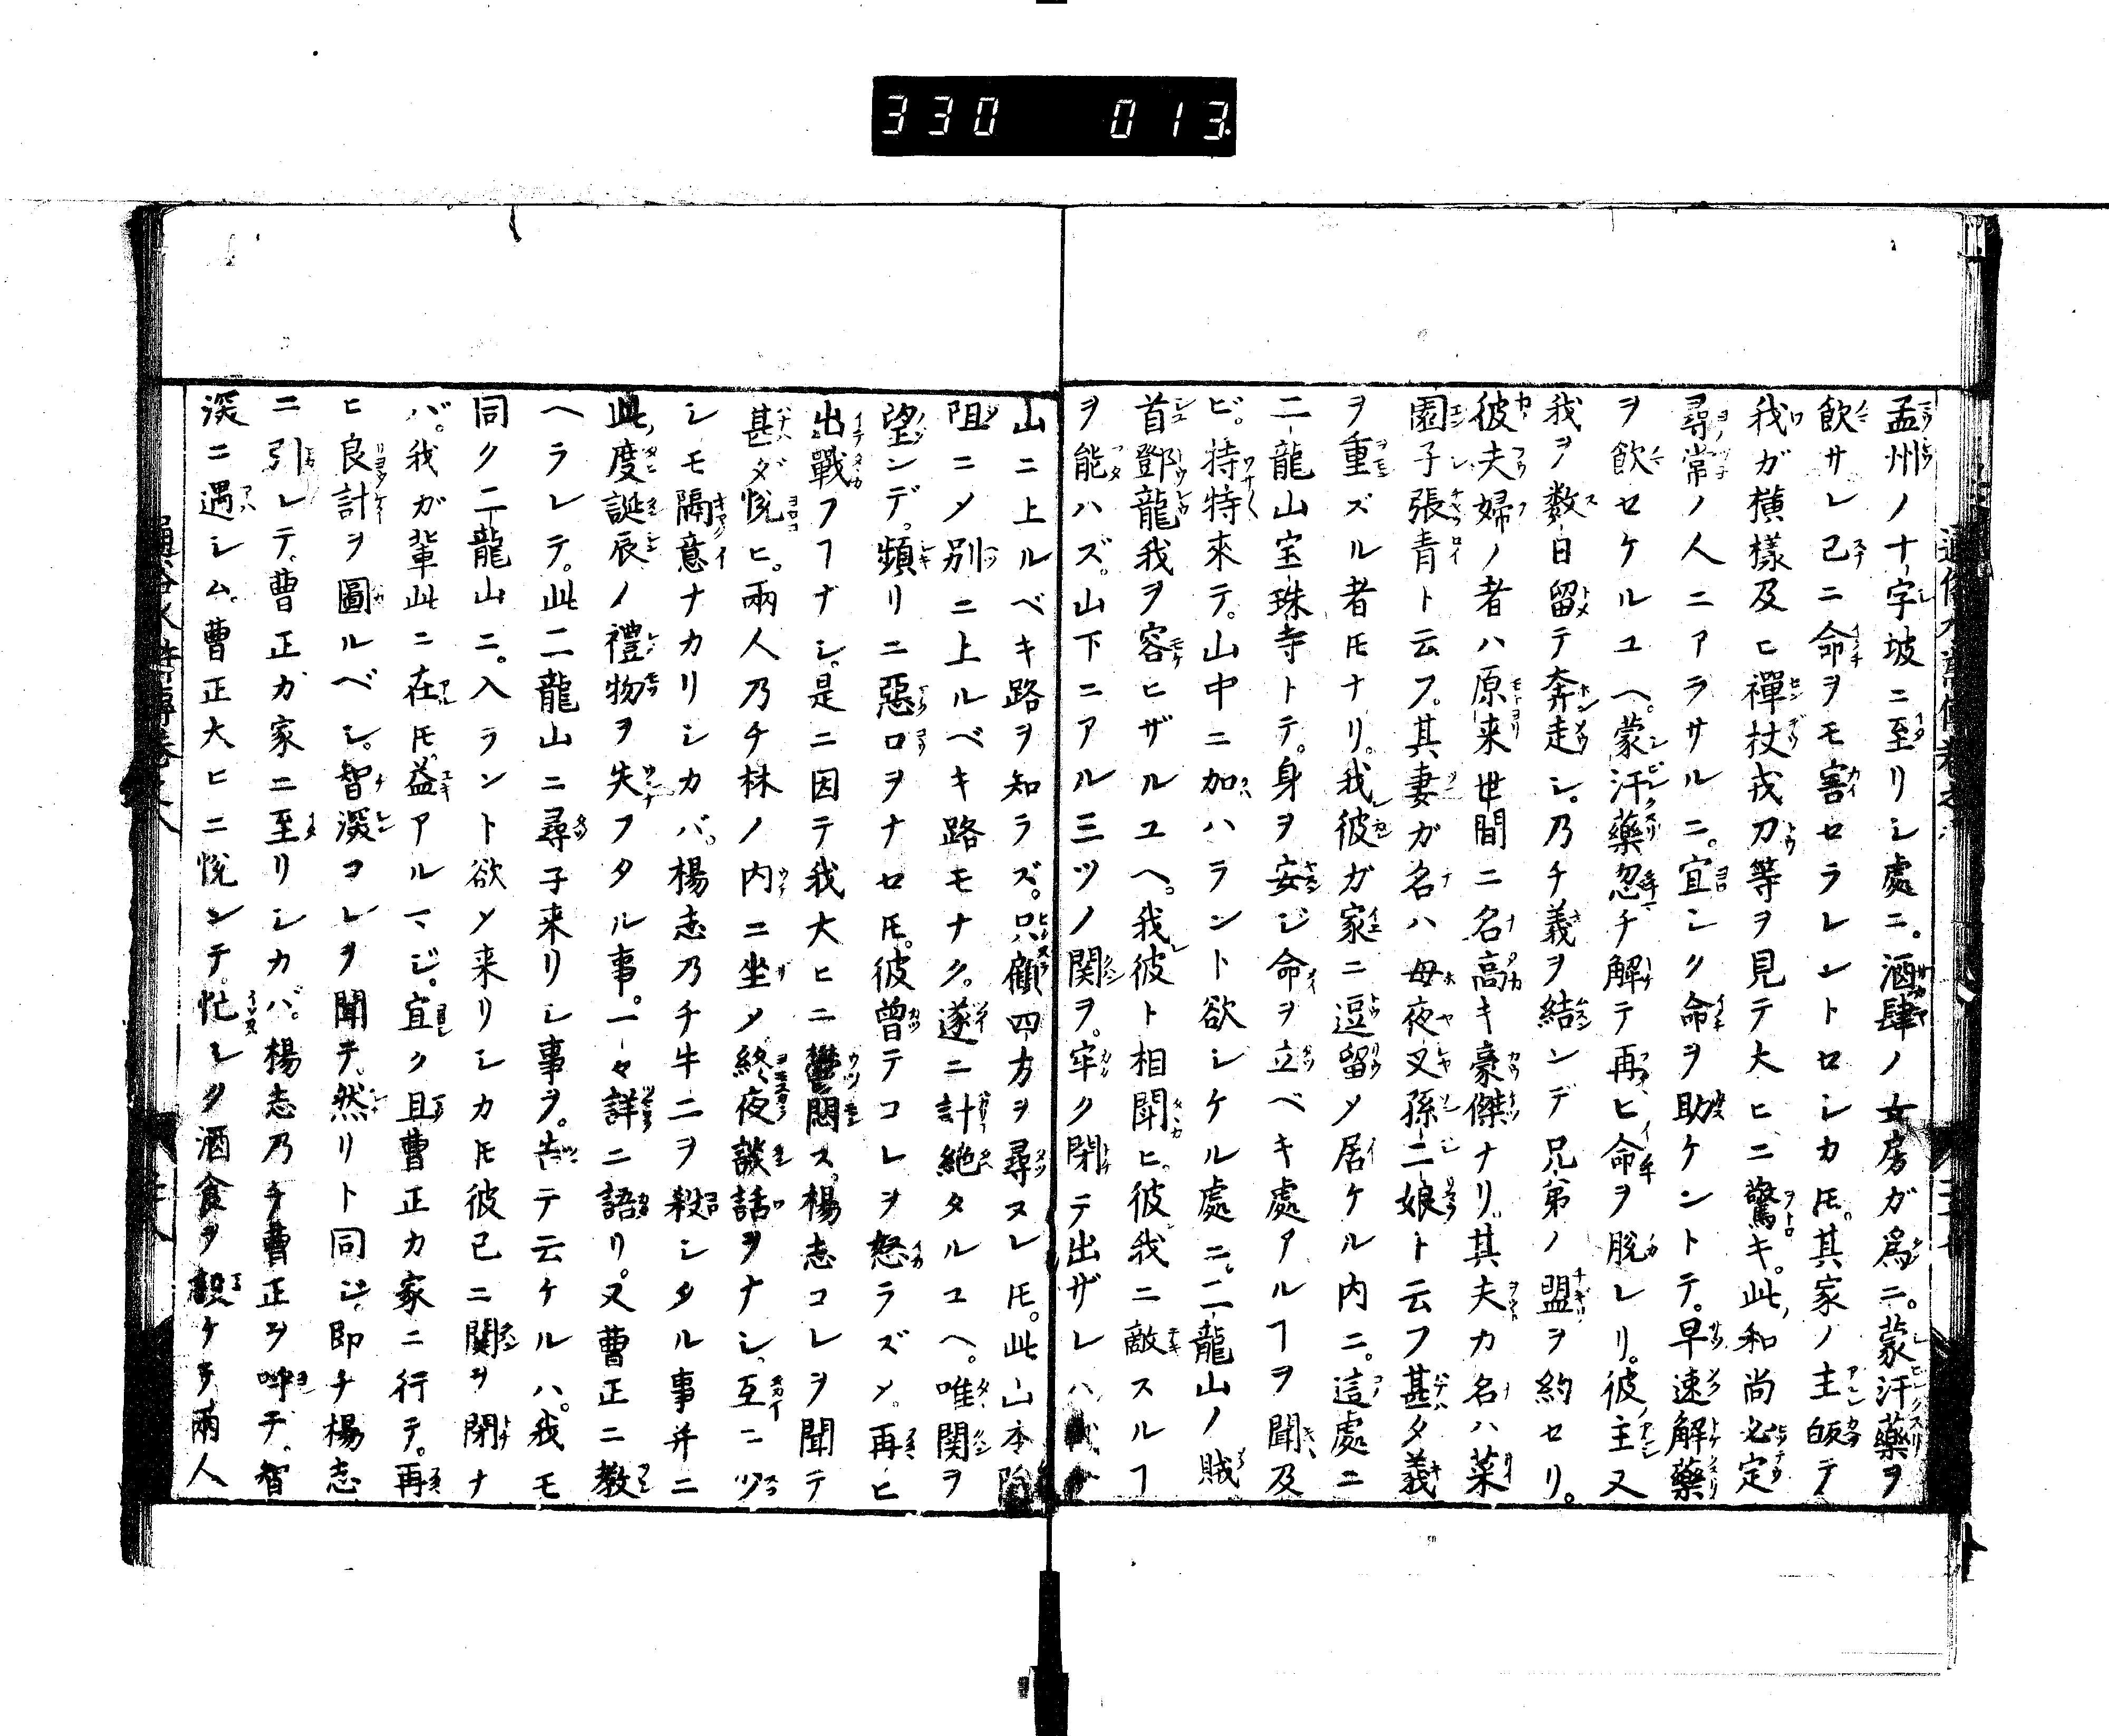 330 013
孟州ノ十字坡ニ至リシ處ニ。酒肆ノ女房ガ爲ニ。蒙汗藥ヲ
飲サレ已ニ命ヲモ害セラレントロシカ𪜈。其家ノ主皈テ
我ガ模樣及ヒ禪杖戎刀等ヲ見テ大ヒニ驚キ。此和尚必定
尋常ノ人ニアラサルニ。宜シク命ヲ助ケントテ。早速解藥
ヲ飲セケルユヘ。蒙汗藥忽チ解テ再ヒ命ヲ脱レリ。彼主又
我ヲ数日留テ奔走シ。乃チ義ヲ結ンデ兄弟ノ盟ヲ約セリ。
彼夫婦ノ者ハ原来世間ニ名高キ豪傑ナリ。其夫カ名ハ菜
園子張青ト云フ。其妻ガ名ハ母夜叉孫二娘ト云フ甚タ義
ヲ重ズル者𪜈ナリ。我彼ガ家ニ逗留〆居ケル内ニ。這處ニ
二龍山宝珠寺トテ。身ヲ安ジ命ヲ立ベキ處アルヿヲ聞及
ビ。特特來テ。山中ニ加ハラント欲シケル處ニ。二龍山ノ賊
首鄧龍我ヲ容ヒザルユヘ。我彼ト相鬪ヒ。彼我ニ敵スルヿ
ヲ能ハズ。山下ニアル三ツノ関ヲ。牢ク閉テ出ザレハ
山ニ上ルベキ路ヲ知ラズ。只顧四方ヲ尋ヌレ𪜈。此山本險
阻ニ〆別ニ上ルベキ路モナク。遂ニ計絶タルユヘ。唯関ヲ
望ンデ。頻リニ惡口ヲナセ𪜈。彼曾テコレヲ怒ラズ〆。再ヒ
出戰フヿナシ。是ニ因テ我大ヒニ鬱悶ス。楊志コレヲ聞テ
甚ダ悦ヒ。兩人乃チ林ノ内ニ坐〆終夜談話ヲナシ、互ニ少
シモ隔意ナカリシカバ。楊志乃チ牛二ヲ殺シタル事并ニ
此度誕辰ノ禮物ヲ失フタル事。一々詳ニ語リ。又曹正ニ教
ヘラレテ。此二龍山ニ尋子来リシ事ヲ。告テ云ケルハ。我モ
同ク二龍山ニ。入ラント欲〆来リシカ𪜈彼已ニ関ヲ閉ナ
バ。我ガ輩此ニ在𪜈。益アルマジ。宜ク且曹正カ家ニ行テ。再
ヒ良計ヲ圖ルベシ。智深コレヲ聞テ。然リト同ジ、即チ楊志
ニ引レテ。曹正カ家ニ至リシカバ。楊志乃チ曹正ヲ呼テ。智
深ニ遇シム。曹正大ヒニ悦ンテ。忙シタ酒食ヲ設ケテ兩人